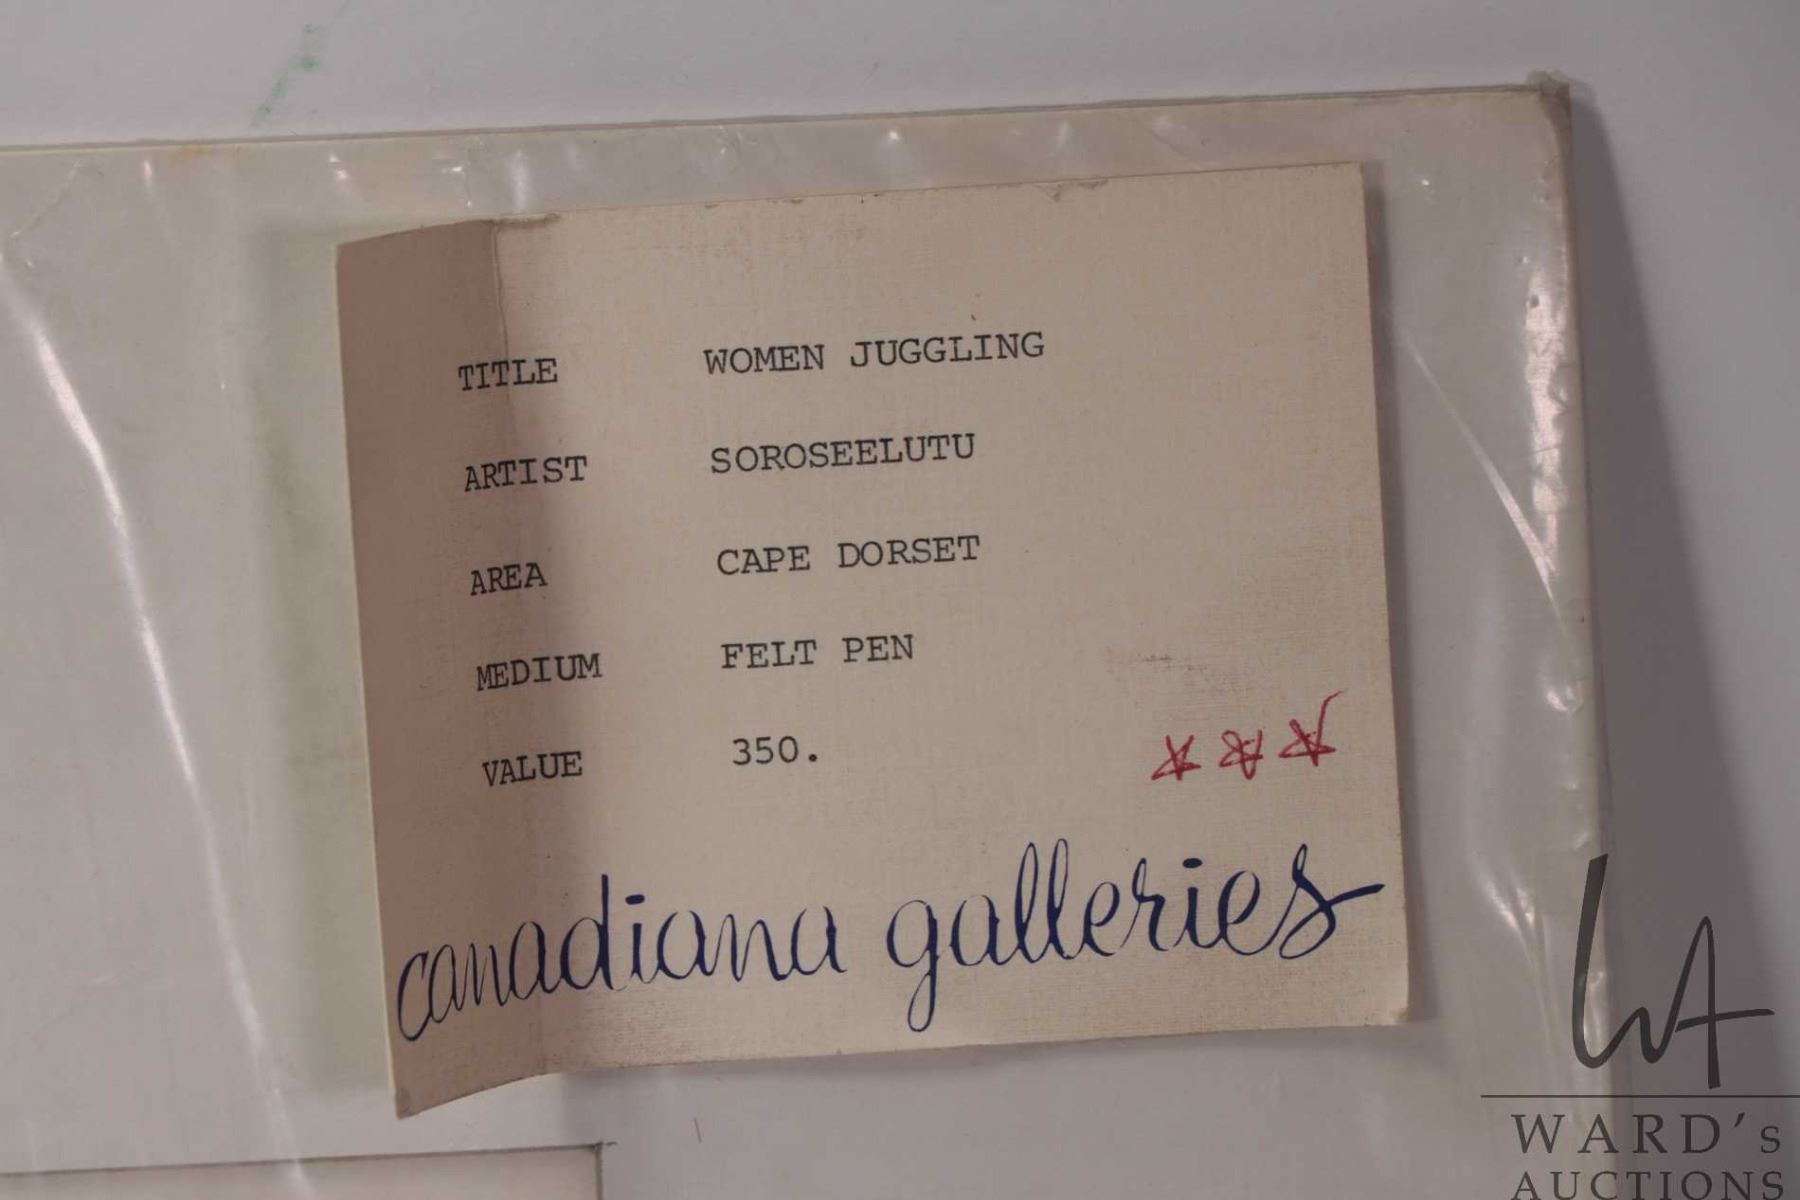 TITLE WOMEN JUGGLING
ARTIST SOROSEELUTU
AREA CAPE DORSET
MEDIUM FELT PEN
VALUE 350.
***
canadiana galleries
WA
WARD's
AUCTIONS